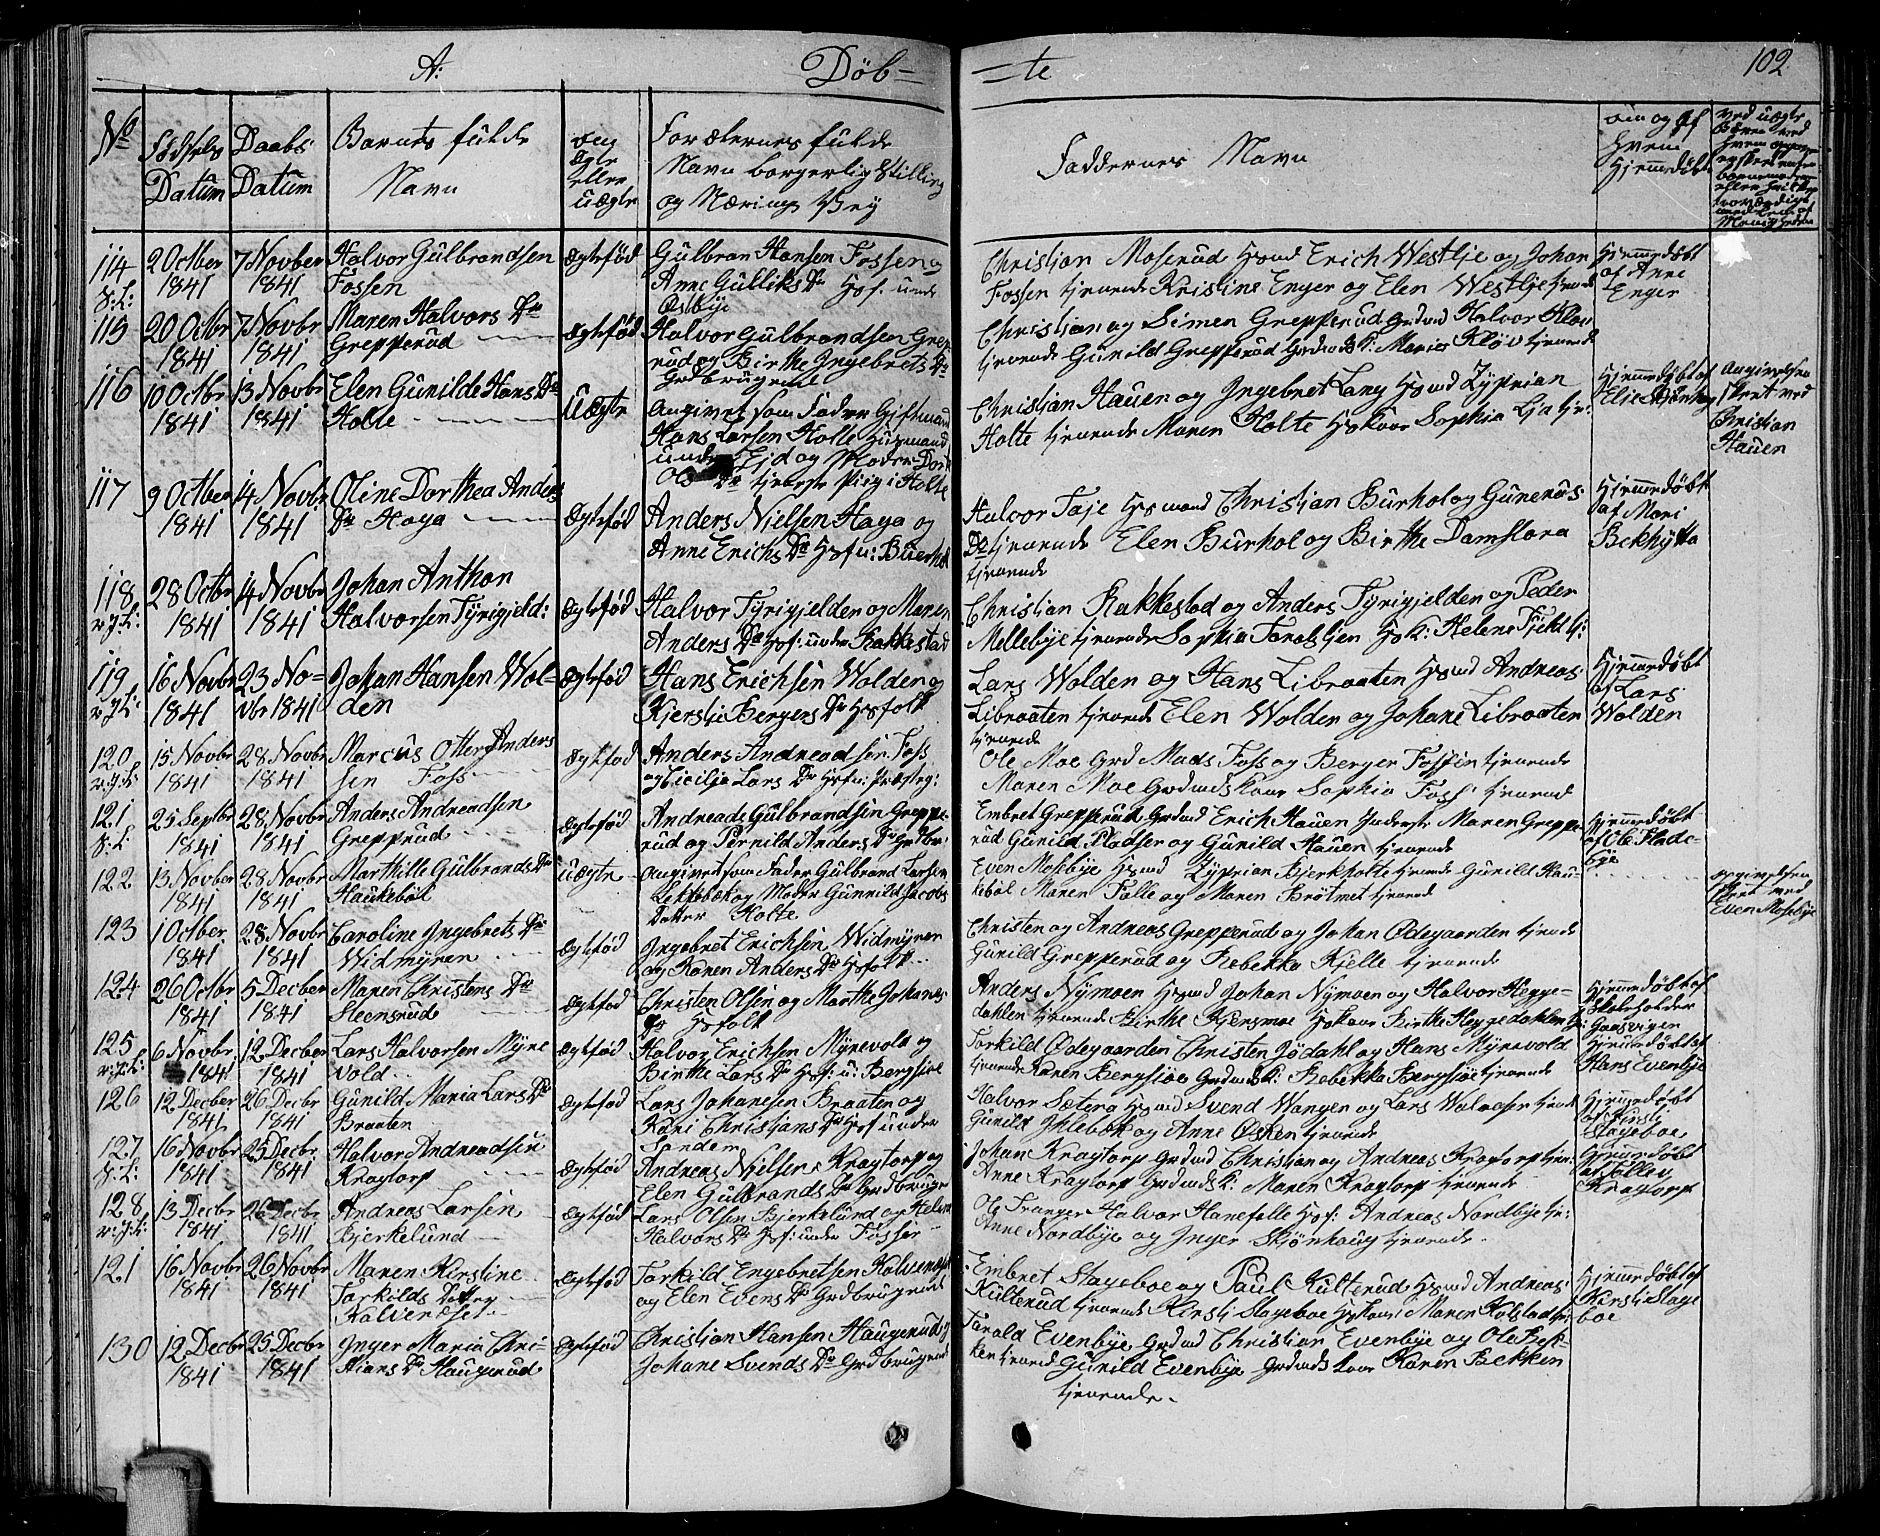 A: Döb-
=te 102
No
Födsels Datum
Daabs Datum
Barnets fulde Navn
om Egte eller uægte
Forælernes fulde Navn borgerlig Stilling og Nærings Vej
Faddernes Navn
om og af Hvem Hjemedöbt
114 2 Octber 1841 7 Novber 1841 Halvor Gulbrandsen Fossen ægtefød Gulbran Hansen Fossen og Anne Gulliks Dr Hosf. unde Østbye
Christian Moserud Hsmd Erich Westlje og Johan Fossen tjenende Kristine Enger og Elen Westlje tjenende
Hjemedöbt af Anne Enger
115 20 Octbr 1841 7 Novbr 1841 Maren Halvors Dr Grepperud ægtefød Halvor Gulbrandsen Grepperud og Birthe Ingebrets Dr Grdbrugende
Christian og Simen Grepperud Grdmd Halvor Kløv tjenende Gunild Grepperud Grdmds K: Maria Kløv tjenende
116 10 Octbr 1841 13 Novbr 1841 Elen Gunilde Hans Dr Holte uægte Angivet som Fader Giftmand Hans Larsen Holte Husmand unde Ejd og Moder Dort Ols Dr tjeneste Pige i Holte
Christian Hauen og Ingebret Lang Hsmd Zyprian Holte tjenende Maren Holte Hskaar Sophia Lja tje:
Hjemedöbt af Elie
Angivelsen skeet ved Christian Hauen
117 9 Octber 1841 14 Novbr 1841 Oline Dorthea Anders Dr Haga ægtefød Anders Nielsen Haga og Anne Erichs Dr Hosf u: Buerhol
Halvor Taje Hsmand Christian Burhol og Gunerius Do tjenende Elen Burhol og Birthe Damslora tjenende
Hjemedöbt af Mari Bekhytta
118 v:J:L: 28 Octbr 1841 14 Novbr 1841 Johan Anthon Halvorsen Tyrigjeld: ægtefød Halvor Tyrigjelden og Maren Anders Dr Hosf: under Rakkestad
Christian Rakkestad og Anders Tyrigjelden og Peder Mellebye tjenende Sophia Taralsljen Hs K: Helene Fjeld tj:
119 v:J:L: 16 Novbr 1841 23 Novbr 1841 Johan Hansen Wolden ægtefød Hans Erichsen Wolden og Kjerstja Bergers Dr Hsfolk
Lars Wolden og Hans Libraaten Hsmd Andreas Libraaten tjenende Elen Wolden og Johane Libraaten tjenende
Hjemedöbt af Lars Wolden
120 v:J:L: 15 Novbr 1841 28 Novbr 1841 Marcus Otter Andersen Foss ægtfød Anders Andreadsen Foss og Cicilja Lars Dr Hosf u: Præsteg:
Ole Moe Grd Mads Foss og Berger Fossen tjenende Maren Moe Grdmdskaar Sophia Foss tjenende
121 S:L: 25 Septbr 1841 28 Novbr 1841 Anders Andreadsen Grepprud ægtefød Andreads Gulbrandsen Grepperud og Pernild Anders Dr Grdbr:
Embret Grepperud Grdmd Erich Hauen Inderste Maren Grepperud Gunild Pladser og Gunild Hauen tjenende
Hjemedöbt af Ole
122 13 Novber 1841 28 Novbr 1841 Marthille Gulbrands Dr Haukebøl uægte Angivet som Fader Gulbrand Larsen Lekkebøk og Moder Gunnild Jacobs Datter Holte
Even Mosebye Hsmd Zyprian Bjerkholte tjenende Gunild Haukebøl Maren Tolle og Maren Brøtmet tjenende
Angivelsen skeet ved Even Mosebye
123 1 Octber 1841 28 Novbr 1841 Caroline Ingebrets Dr Widmyren ægtfød Ingebret Erichsen Widmyren og Karen Anders Dr Hsfolk
Christen og Andreas Grepperud og Johan Ødegaarden tjenende Gunild Grepperud og Rebekka Kjelle tjenende
124 26 Octbr 1841 5 Decber 1841 Maren Christens Dr Steensrud ægtfød Christen Olsen og Marthe Johans Dr Hsfolk
Anders Nymoen Hsmd Johan Nymoen og Halvor Heggedahlen tjenende Birthe Kjensmoe Hskaar Birthe Heggedahlen tj:
Hjemedöbt af Skoleholder Gaasvigen
125 v:J:L: 6 Novbr 1841 12 Decber 1841 Lars Halvorsen Myrevold ægtefød Halvor Erichsen Myrevold og Birthe Lars Dr Hosf: u: Bergsjøe
Tarkild Ødegaarden Christen Jødahl og Hans Myrevold tjenende Karen Bergsjøe Grdmds K: Rebekka Bergsjøe tjenende
Hjemedöbt af Hans Evenbye
126 12 Decber 1841 26 Decbr 1841 Gunild Maria Lars Dr Braaten ægtefød Lars Johanesen Braaten og Kari Christians Dr Hosf under Sønder
Halvor Sætera Hsmd Svend Wanger og Lars Walaaser tjende Gunild Ihlebøk og Anne Øsken tjenende
Hjemedöbt af Kirsti Stageboe
127 S:L: 16 Novbr 1841 25 Decbr 1841 Halvor Andreadsen Kragtorp ægtefød Andreas Nielsen Kragtorp og Elen Gulbrands Dr Grdbrugende
Johan Kragtorp Grdmd Christian og Andreas Kragtorp tjen: Anne Kragtorp Grdmds K: Maren Kragtorp tjenende
Hjemedöbt af Tollev Kragtorp
128 v:J:L: 13 Decbr 1841 26 Decbr 1841 Andreas Larsen Bjerkelund ægtefød Lars Olsen Bjerkelund og Helene Halvors Dr Hosf: under Fosser
Ole Tranger Halvor Hanefelle Hosf: Andreas Nordbye tje: Anne Nordbye og Inger Skjønhaug tjenende
121 16 Novbr 1841 26 Novbr 1841 Maren Kirstine Tarkilds Datter Kalvendset ægtefød Tarkild Engebretsen Kalvendset og Elen Evens Dr Grdbrugende
Embret Stageboe og Paul Kulterud Hsmd Andreas Kulterud tjenende Kirsti Stageboe Hskone: Maren Kolstad tje
Hjemedöbt af Kirsti Stageboe
130 12 Decbr 1841 25 Decbr 1841 Inger Maria Christians Dr Haugerud ægtefød Christian Hansen Haugerud og Johane Svends Dr Grdbrugende
Tarald Evenbye Grdmd Christian Evenbye og Ole Bekken tjenende Gunild Evenbye Grdmdskaar Karen Bekken tjenende